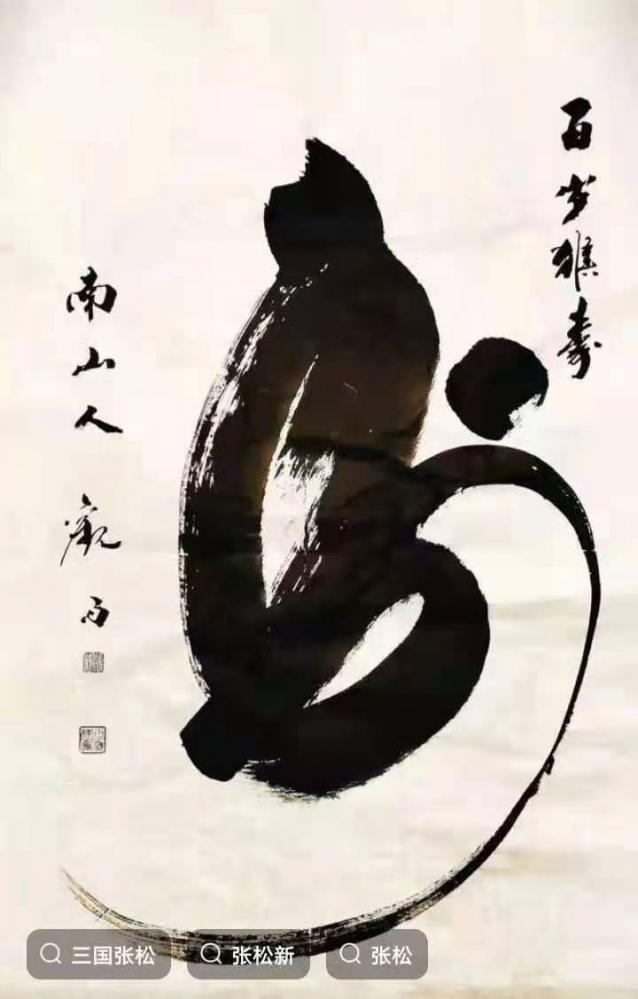 百岁猴寿
寿
南山人
三国张松
张松新
张松